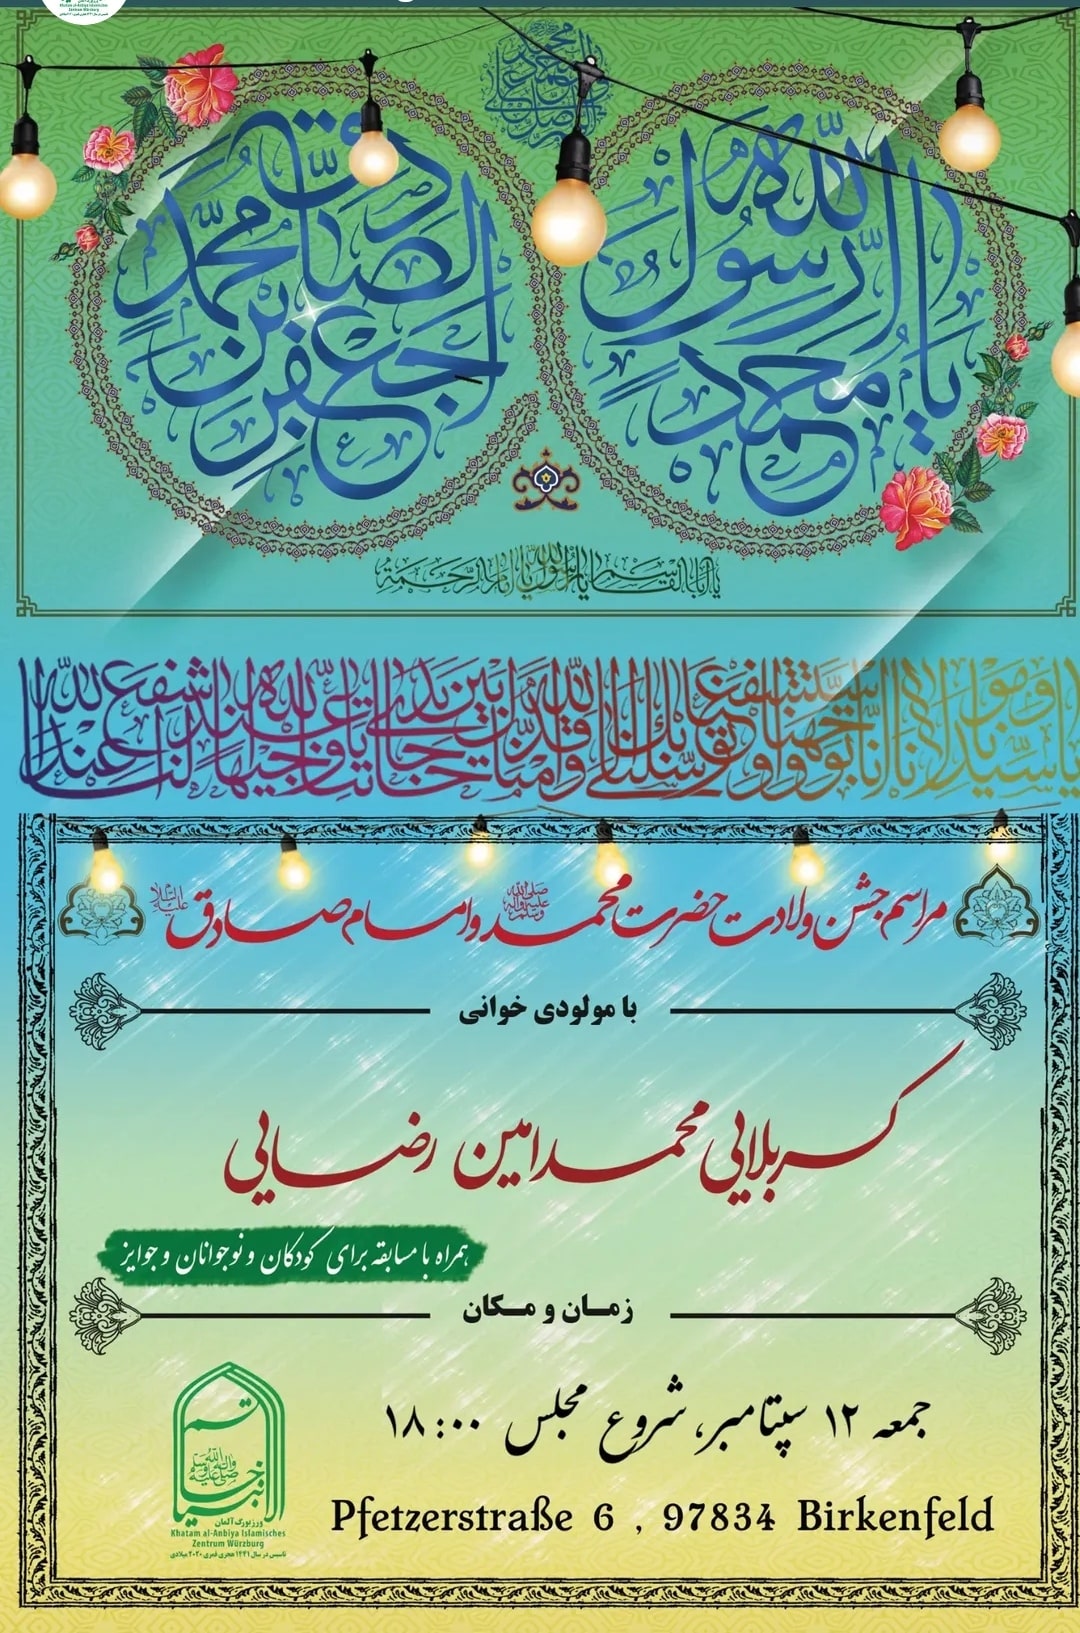 یا محمد یا رسول الله
یا جعفر بن محمد الصادق
یا أبا القاسم یا رسول الله یا إمام الرحمة
یا سیدنا و مولانا إنا توجهنا و استشفعنا و توسلنا بک إلی الله و قدمناک بین یدی حاجاتنا یا وجیها عند الله اشفع لنا عند الله
مراسم جشن ولادت حضرت محمد صلی الله علیه وآله وسلم و امام صادق علیه السلام
با مولودی خوانی
کربلایی محمد امین رضایی
همراه با مسابقه برای کودکان و نوجوانان و جوایز
زمان و مکان
جمعه ۱۲ سپتامبر، شروع مجلس ۱۸:۰۰
Pfetzerstraße 6 , 97834 Birkenfeld
خاتم الانبیاء
صلی الله علیه وآله وسلم
ورزبورگ آلمان
Khatam al-Anbiya Islamisches
Zentrum Würzburg
تاسیس در سال ۱۴۴۱ هجری قمری ۲۰۲۰ میلادی